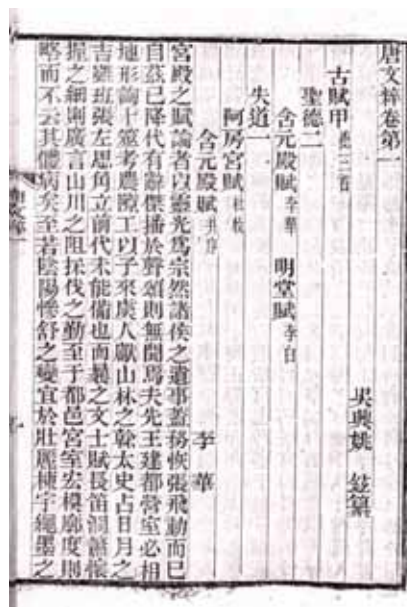 唐文粹卷第一
吳興姚 鉉纂
古賦甲 總三首
聖德二
含元殿賦 李華 明堂賦 李白
失道一
阿房宮賦 杜牧
含元殿賦 并序 李華
宮殿之賦論者以靈光為宗然諸侯之遺事蓋務恢張飛動而已
自茲已降代有辭傑播於聲頌則無聞焉夫先王建都營室必相
地形詢卜筮考農隙工以子來虞人獻山林之榦太史占日月之
吉雖班張左思角立前代未能備也而曩之文士賦長笛洞簫懷
握之細則廣言山川之阻採伐之勤至于都邑宮室宏模廓度則
略而不云其體病矣至若陰陽慘舒之變宜於壯麗棟宇繩墨之